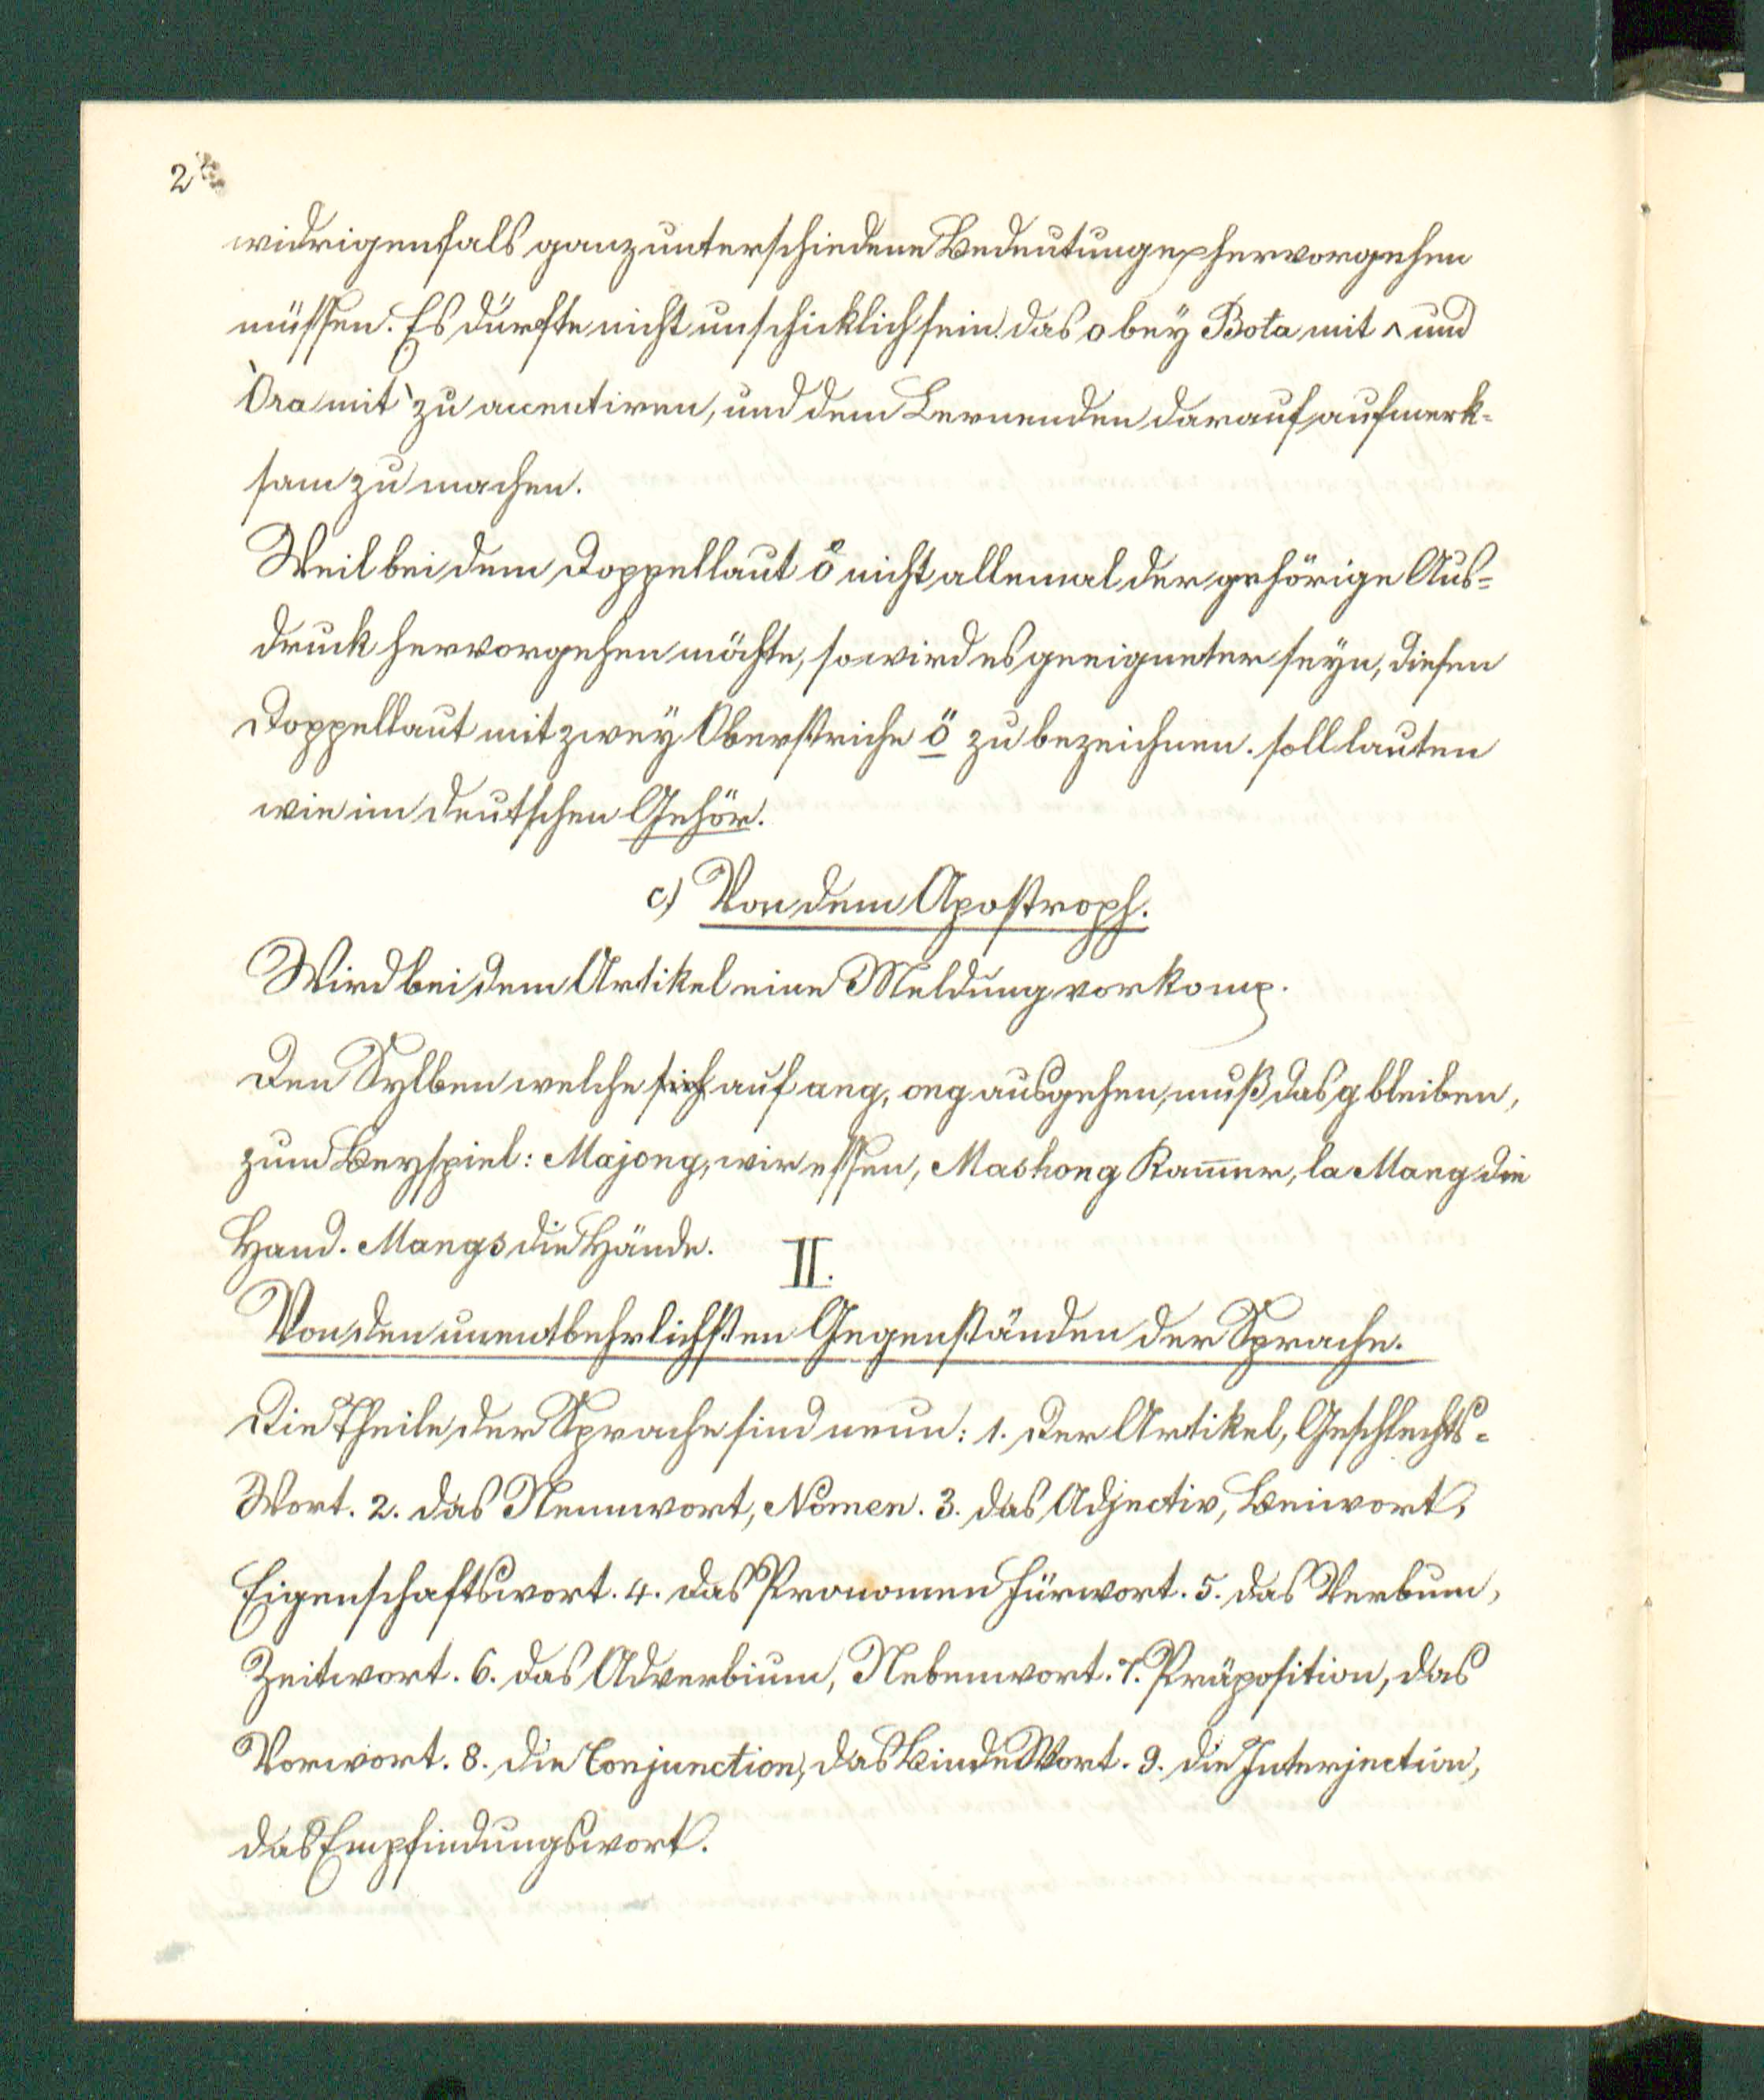 2
widrigenfals ganz unterschiedene Bedeutungen hervorgehen
müssen. Es dürfte nicht unschicklich sein das o bey Bota mit ^ und
Òra mit ` zu accentiren, und dem Lernenden darauf aufmerk-
sam zu machen.
Weil bei dem Doppellaut ö nicht allemal der gehörige Aus-
druck hervorgehen möchte, so wird es geeigneter seyn, diesen
Doppellaut mit zwey Oberstriche ö zu bezeichnen. soll lauten
wie im deutschen Gehör.
c) Von dem Apostroph.
Wird bei dem Artikel eine Meldung vorkom̄.
Den Sylben welche sich auf ang, ong ausgehen, muß das g bleiben,
zum Beyspiel: Majong, wir essen, Mashong Kam̄er, la Mang die
Hand. Mangs die Hände.
II.
Von den unentbehrlichsten Gegenständen der Sprache.
Die Theile der Sprache sind neun: 1. der Artikel, Geschlechts-
Wort. 2. das Nennwort, Nomen. 3. das Adjectiv, Beiwort,
Eigenschaftswort. 4. das Pronomen Fürwort. 5. das Verbum,
Zeitwort. 6. das Adverbium, Nebenwort. 7. Präposition, das
Vorwort. 8. die Conjunction, das BindeWort. 9. die Interjection,
das Empfindungswort.